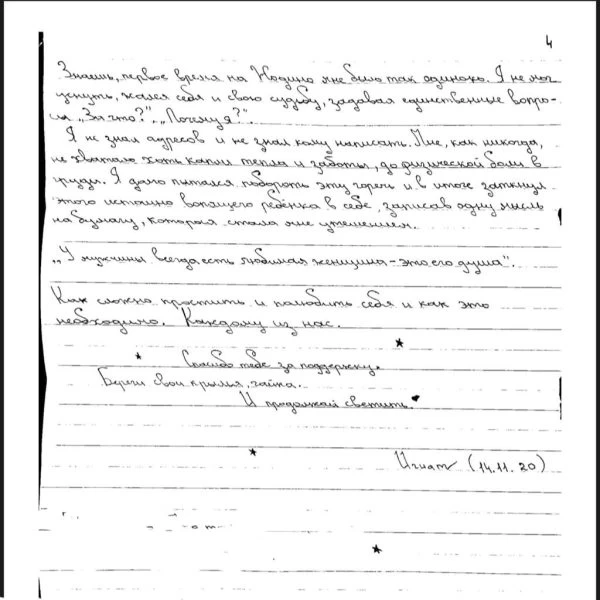 4
Знаешь, первое время на Жодино мне было так одиноко. Я не мог
уснуть, жалел себя и свою судьбу, задавая единственные вопро-
сы „За что?“, „Почему я?“.
Я не знал адресов и не знал кому написать. Мне, как никогда,
не хватало хоть капли тепла и заботы, до физической боли в
груди. Я долго пытался побороть эту горечь и в итоге заткнул
этого истошно вопящего ребёнка в себе, записав одну мысль
на бумагу, которая стала мне утешением.
„У мужчины всегда есть любимая женщина - это его душа“.
Как сложно простить и полюбить себя и как это
необходимо. Каждому из нас.
Спасибо тебе за поддержку.
Береги свои крылья, зайка.
И продолжай светить.
Игнат (14.11.20)